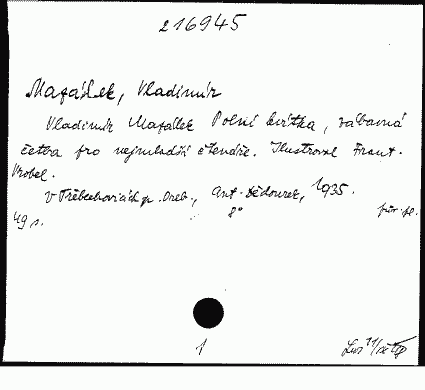 216945
Matjášek, Vladimír
Vladimír Matjášek Polní kvítka, zábavná
četba pro nejmladší čtenáře. Ilustroval Frant.
Vrobel.
V Třebechovicích p. Oreb., Ant. Dědourek, 1935.
49 s. 8°
1